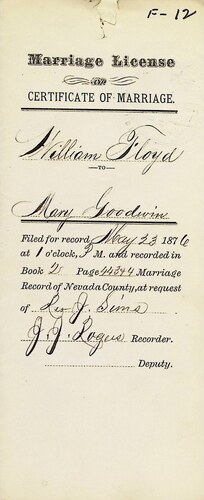 F-12
Marriage License
OR
CERTIFICATE OF MARRIAGE.
William Floyd
—TO—
Mary Goodwin
Filed for record May 23 1876
at 1 o'clock, P M. and recorded in
Book 2 Page 443 Marriage
Record of Nevada County, at request
of J. Sims
J. J. Rogers Recorder.
Deputy.